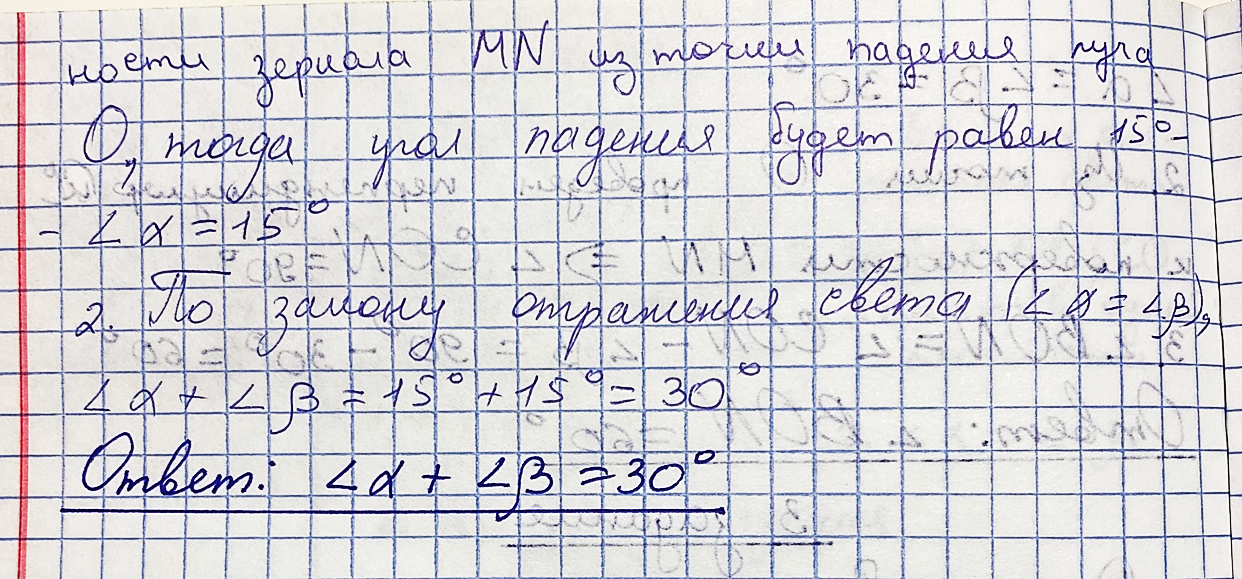 ности зеркала MN из точки падения луча
О, тогда угол падения будет равен 15° -
- ∠α = 15°
2. По закону отражения света (∠α = ∠β),
∠α + ∠β = 15° + 15° = 30°
Ответ: ∠α + ∠β = 30°